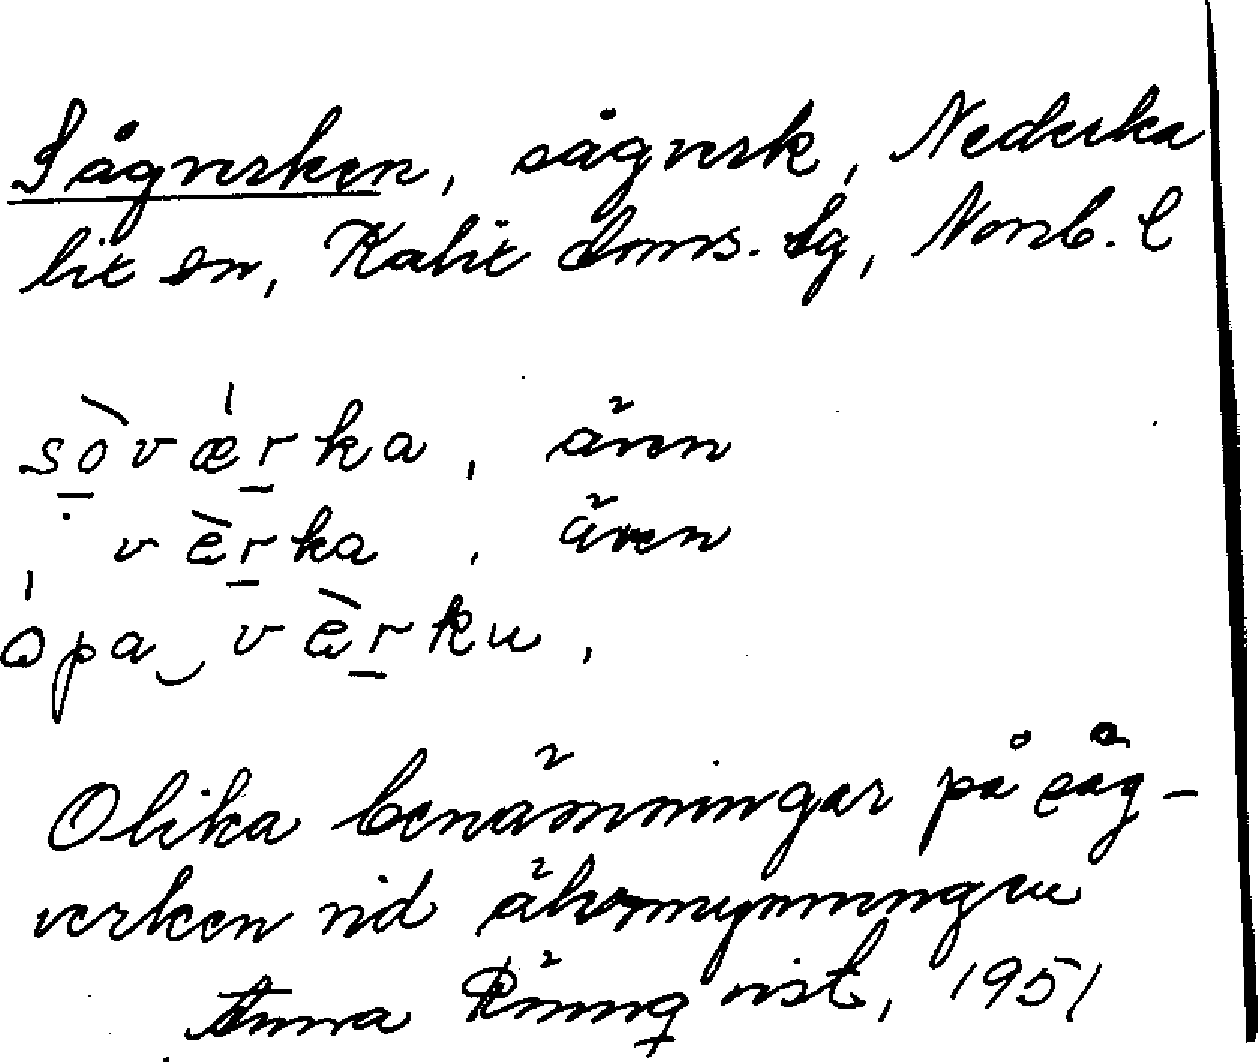 Sågverken, sågverk, Nederka
lix sn, Kalix doms. lg, Norrb. l
sòværka, även
vèrka, även
ópa vèrku,
Olika benämningar på såg-
verken vid älvmynningen
Anna Rönnqvist, 1951